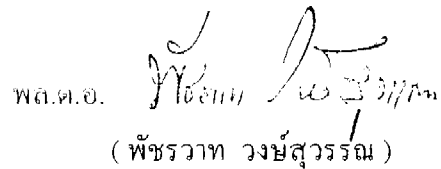 พล.ต.อ.
( พัชรวาท วงษ์สุวรรณ )